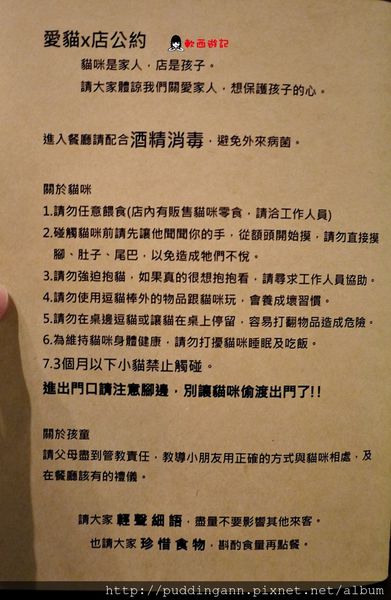 愛貓x店公約
軟西遊記
貓咪是家人，店是孩子。
請大家體諒我們關愛家人，想保護孩子的心。
進入餐廳請配合酒精消毒，避免外來病菌。
關於貓咪
1.請勿任意餵食(店內有販售貓咪零食，請洽工作人員)
2.碰觸貓咪前請先讓他聞聞你的手，從額頭開始摸，請勿直接摸
腳、肚子、尾巴，以免造成牠們不悅。
3.請勿強迫抱貓，如果真的很想抱抱看，請尋求工作人員協助。
4.請勿使用逗貓棒外的物品跟貓咪玩，會養成壞習慣。
5.請勿在桌邊逗貓或讓貓在桌上停留，容易打翻物品造成危險。
6.為維持貓咪身體健康，請勿打擾貓咪睡眠及吃飯。
7.3個月以下小貓禁止觸碰。
進出門口請注意腳邊，別讓貓咪偷渡出門了!!
關於孩童
請父母盡到管教責任，教導小朋友用正確的方式與貓咪相處，及
在餐廳該有的禮儀。
請大家 輕聲細語，盡量不要影響其他來客。
也請大家 珍惜食物，斟酌食量再點餐。
http://puddingann.pixnet.net/album